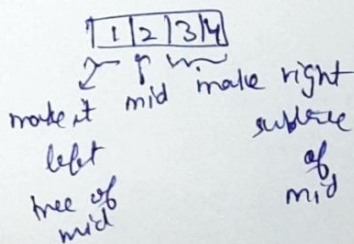 1 2 3 4
make it left tree of mid
mid
make right subtree of mid